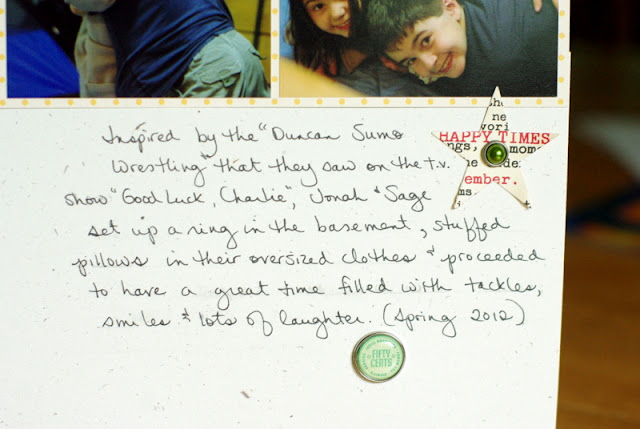 Inspired by the "Duncan Sumo
Wrestling" that they saw on the t.v.
show "Good Luck, Charlie", Jonah & Sage
set up a ring in the basement, stuffed
pillows in their oversized clothes & proceeded
to have a great time filled with tackles,
smiles & lots of laughter. (Spring 2012)
HAPPY TIMES
ember.
FIFTY
CENTS